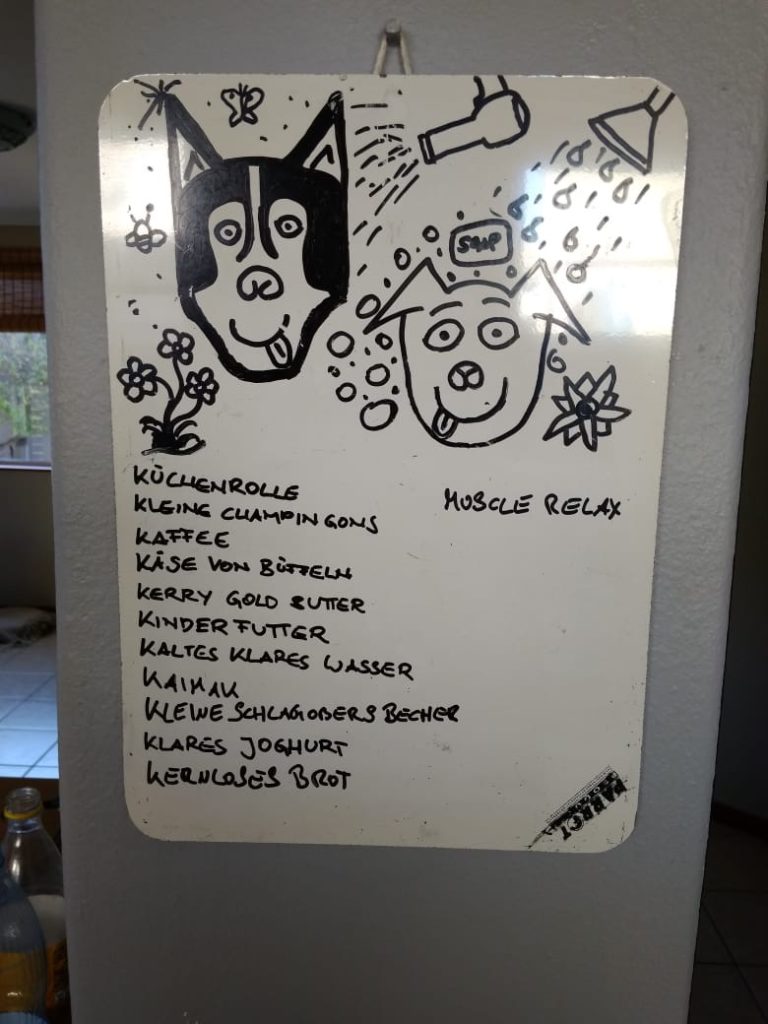 SOAP
KÜCHENROLLE
KLEINE CHAMPINGONS
KAFFEE
KÄSE VON BÜFFELN
KERRY GOLD BUTTER
KINDERFUTTER
KALTES KLARES WASSER
KAIMAK
KLEINE SCHLAGOBERS BECHER
KLARES JOGHURT
KERNLOSES BROT
MUSCLE RELAX
PARROT